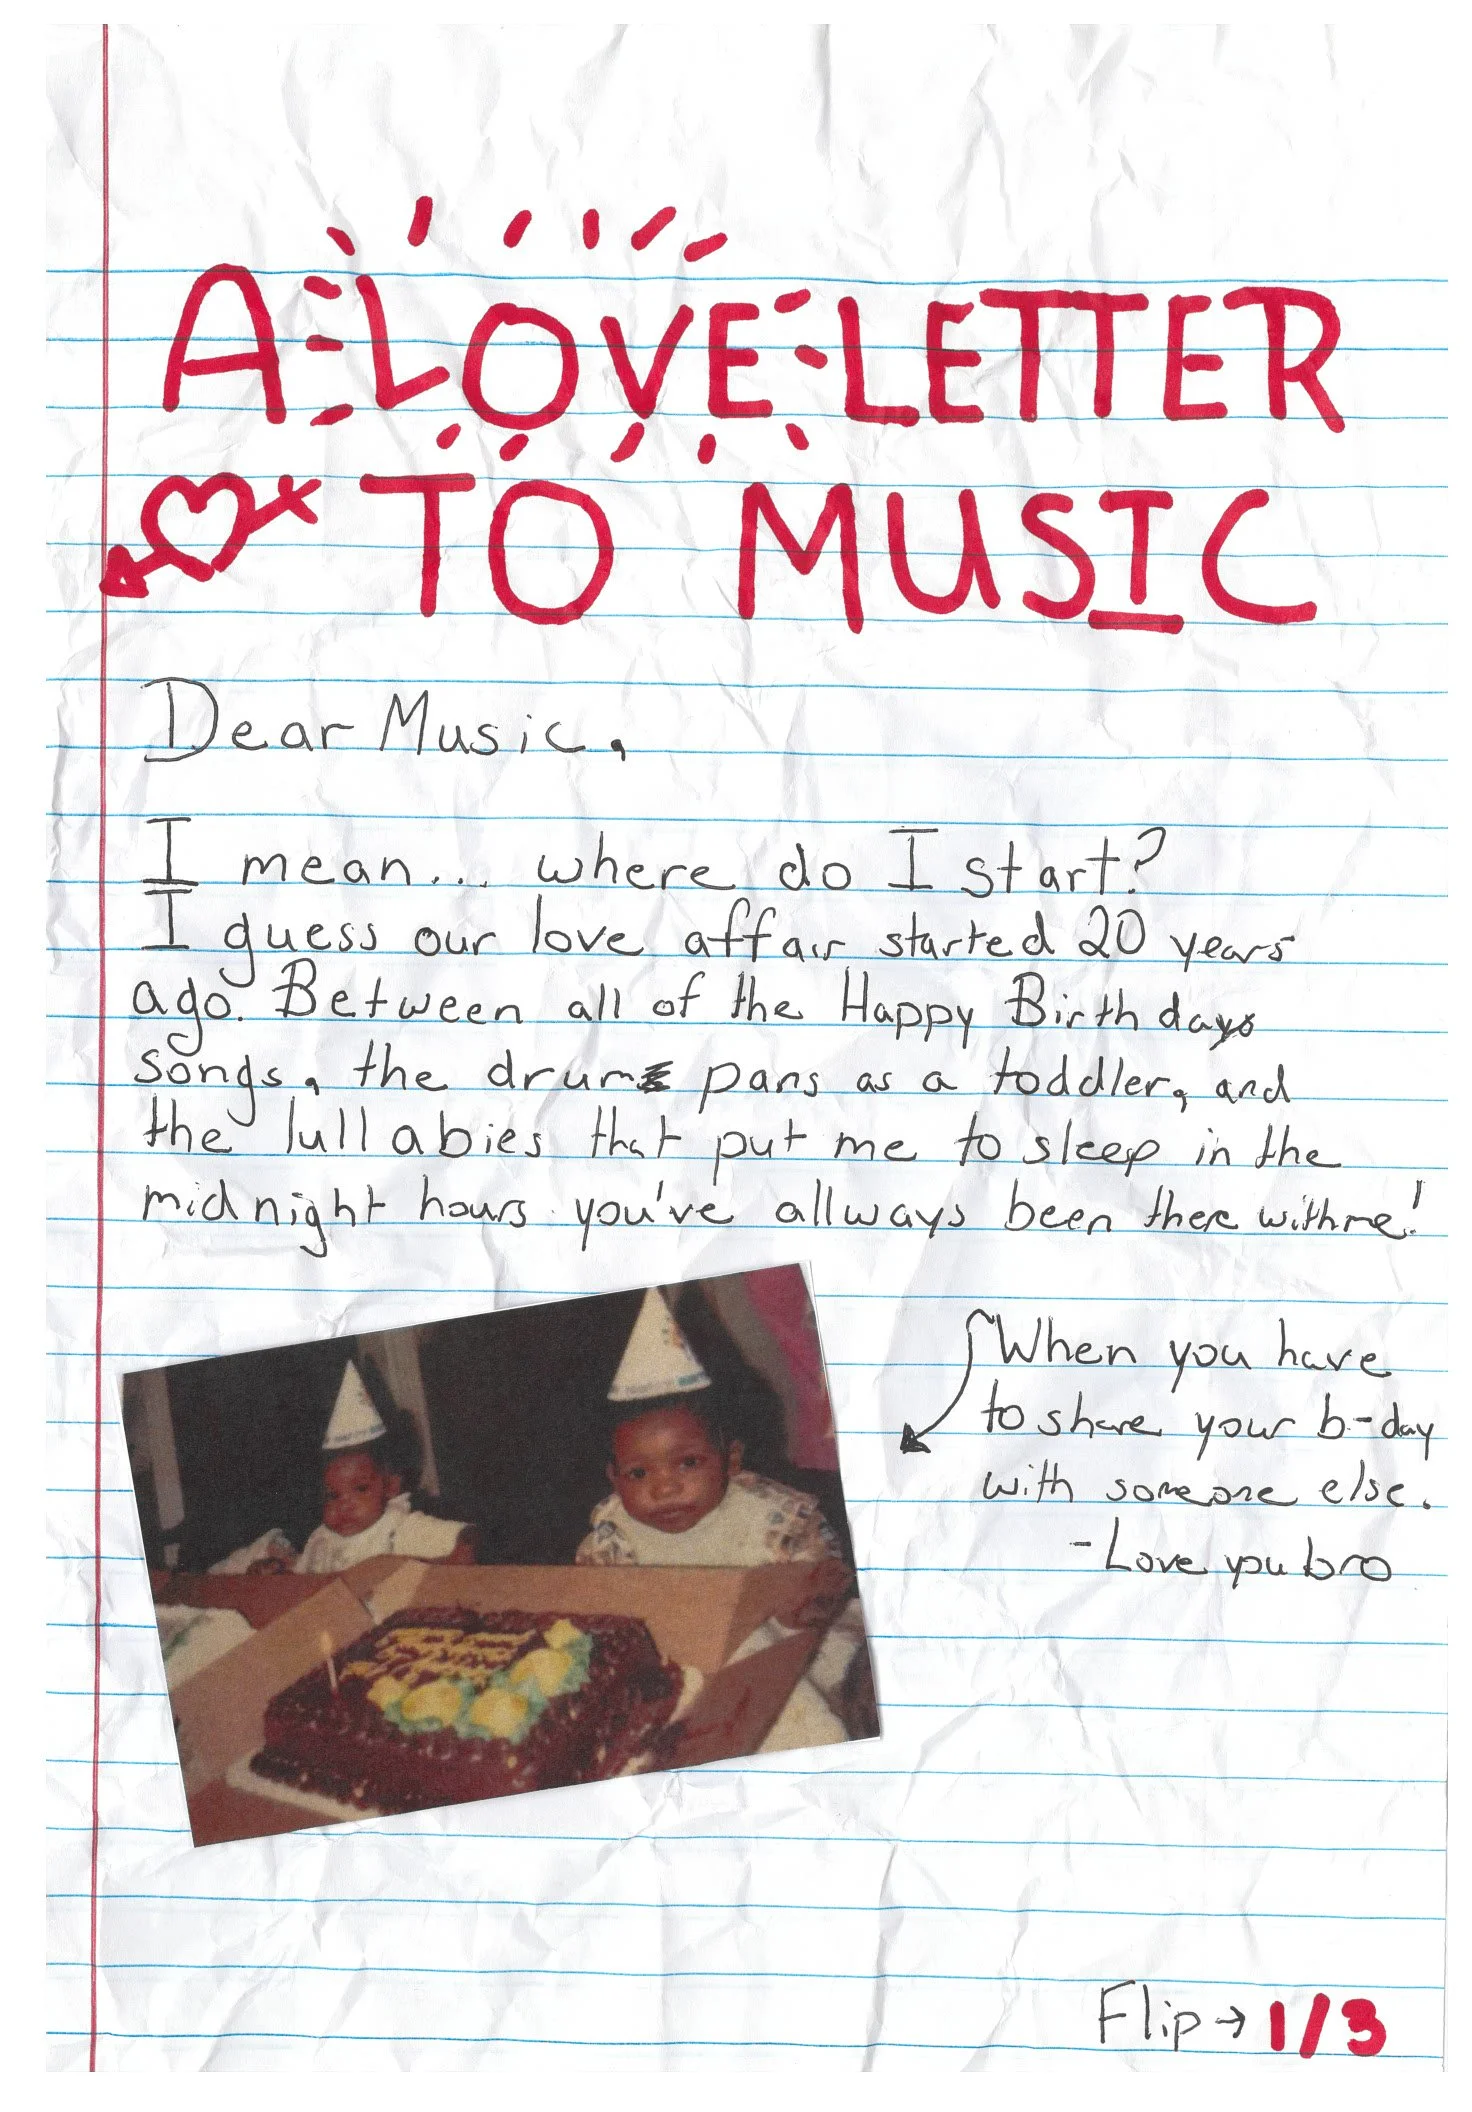 A LOVE LETTER
TO MUSIC
Dear Music,
I mean... where do I start?
I guess our love affair started 20 years
ago. Between all of the Happy Birthday
songs, the drum pans as a toddler, and
the lullabies that put me to sleep in the
midnight hours you've allways been there with me!
When you have
to share your b-day
with someone else.
- Love you bro
Flip → 1/3